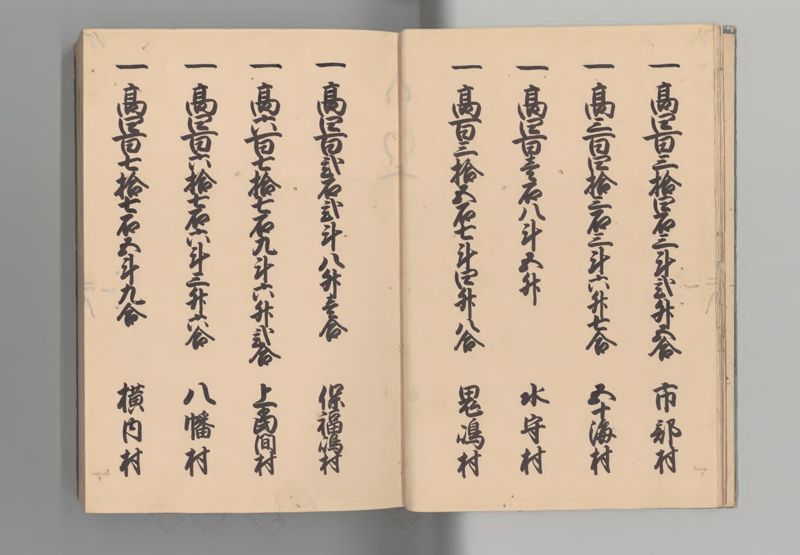 一 高四百三拾四石三斗弐升五合 市部村
一 高三百四拾三石三斗六升七合 五十海村
一 高四百壱石八斗五升 水守村
一 高百三拾五石七斗四升八合 鬼嶋村
一 高四百弐石弐斗八升壱合 保福嶋村
一 高六百七拾七石九斗六升弐合 上当間村
一 高四百六拾七石六斗三升六合 八幡村
一 高四百七拾七石五斗九合 横内村